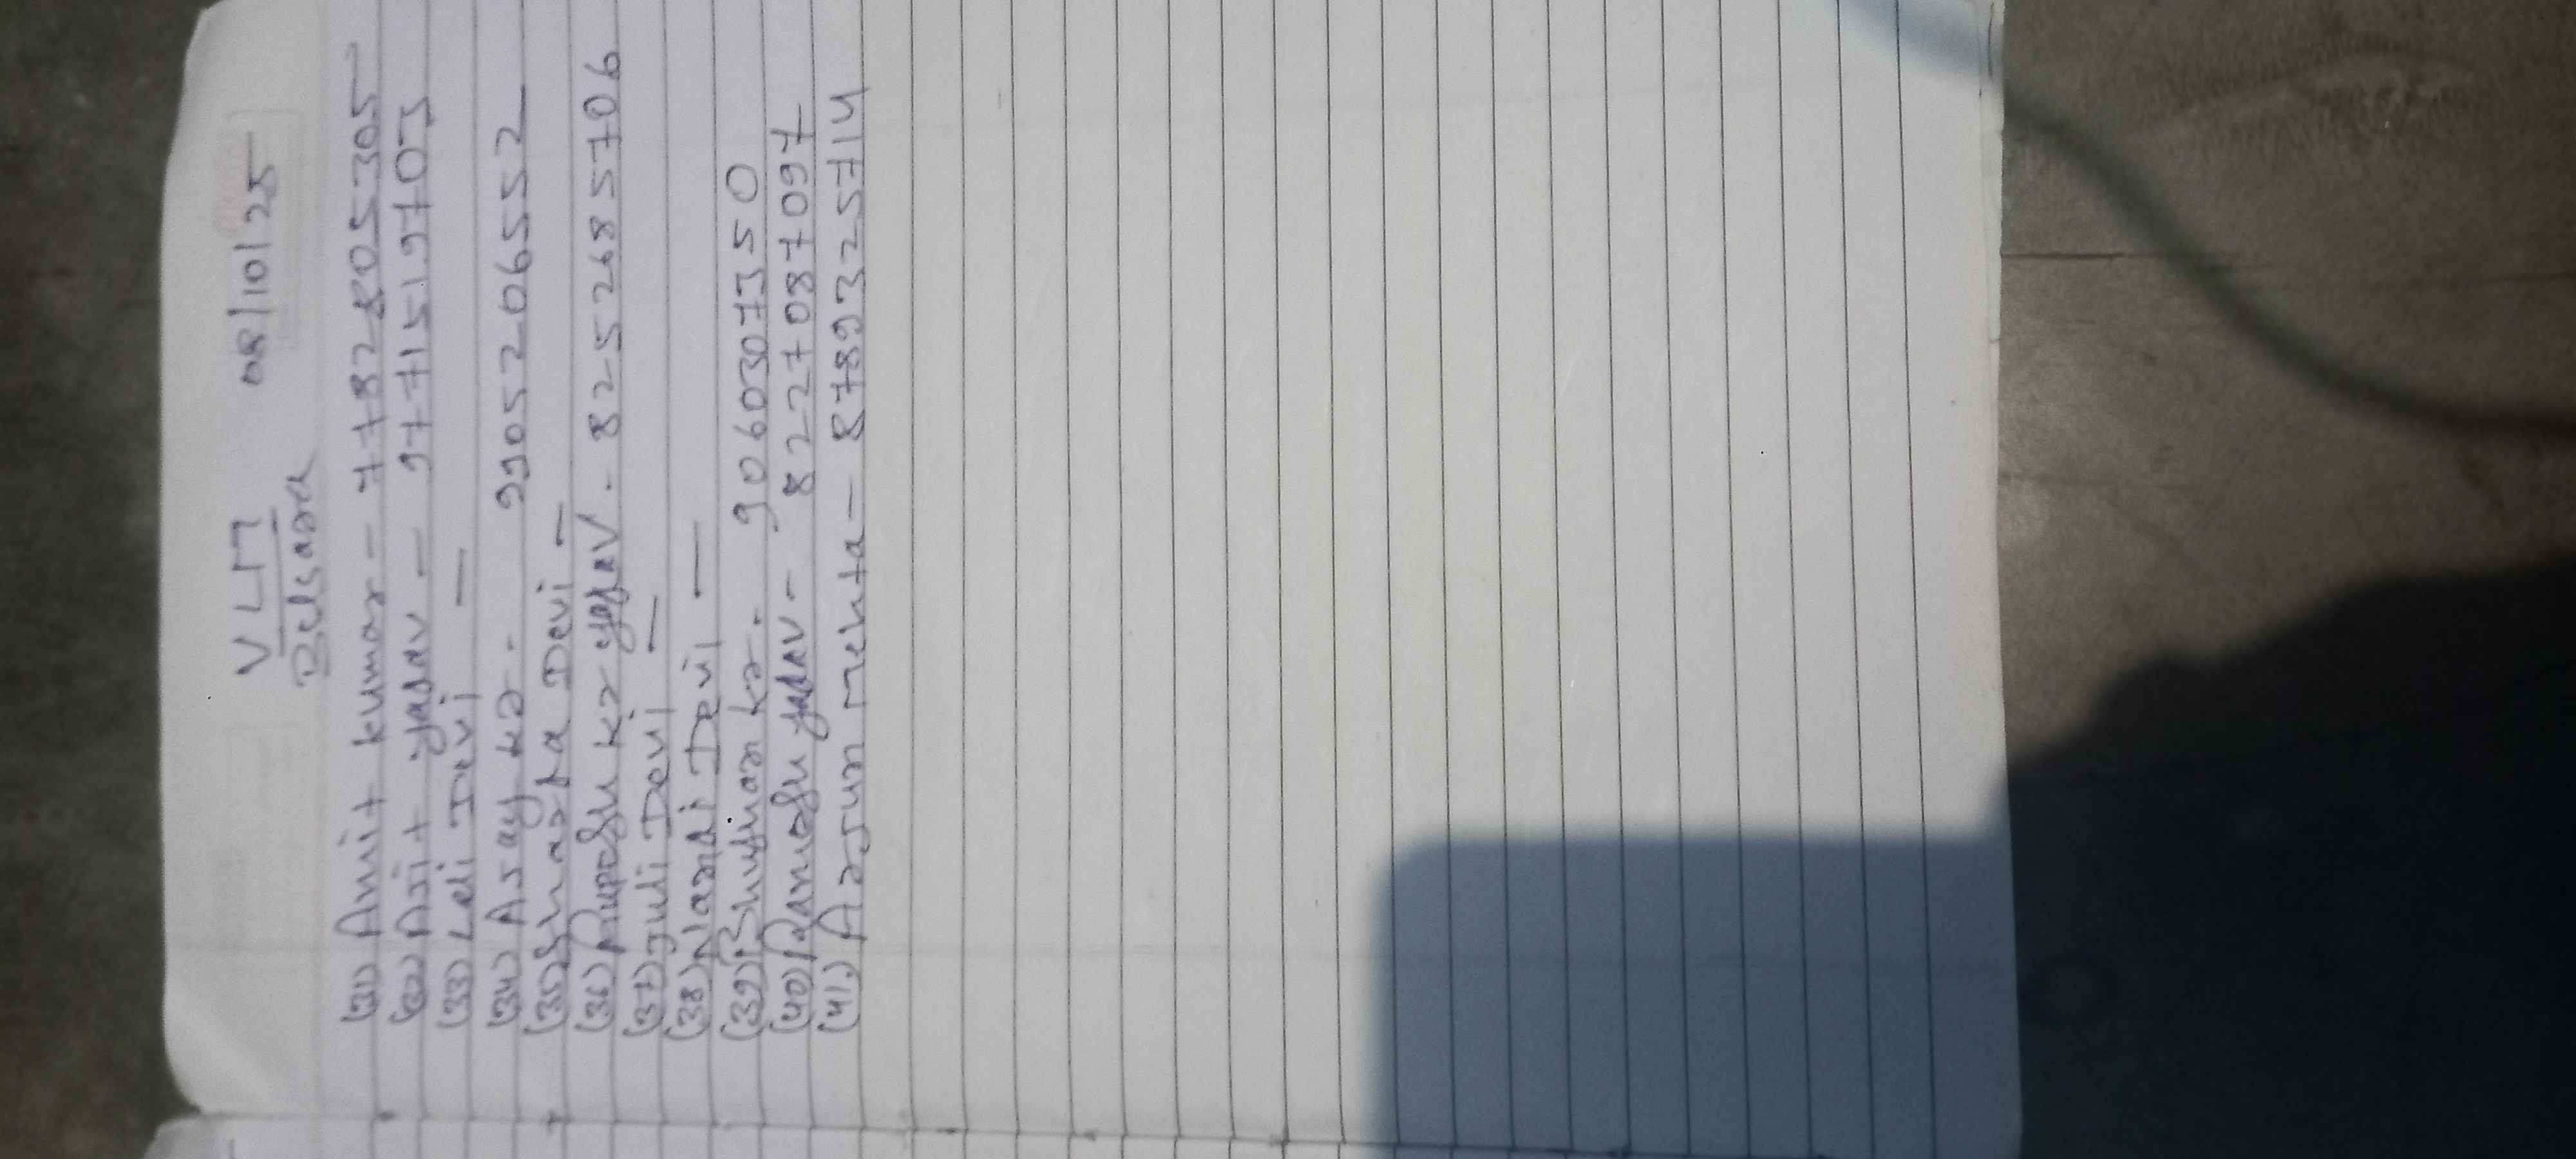 VLM 08/10/25
Belsara
(31) Amit kumar - 7782805305
(32) Ajit yadav - 9771519703
(33) Leli Devi —
(34) Ajay kr. 9905206552
(35) Devi —
(36) kr yadav. 8252685706
(37) Juli Devi —
(38) Devi —
(39) kr. 9060307350
(40) yadav - 8227087097
(41.) Arjun Mehta - 8789325714